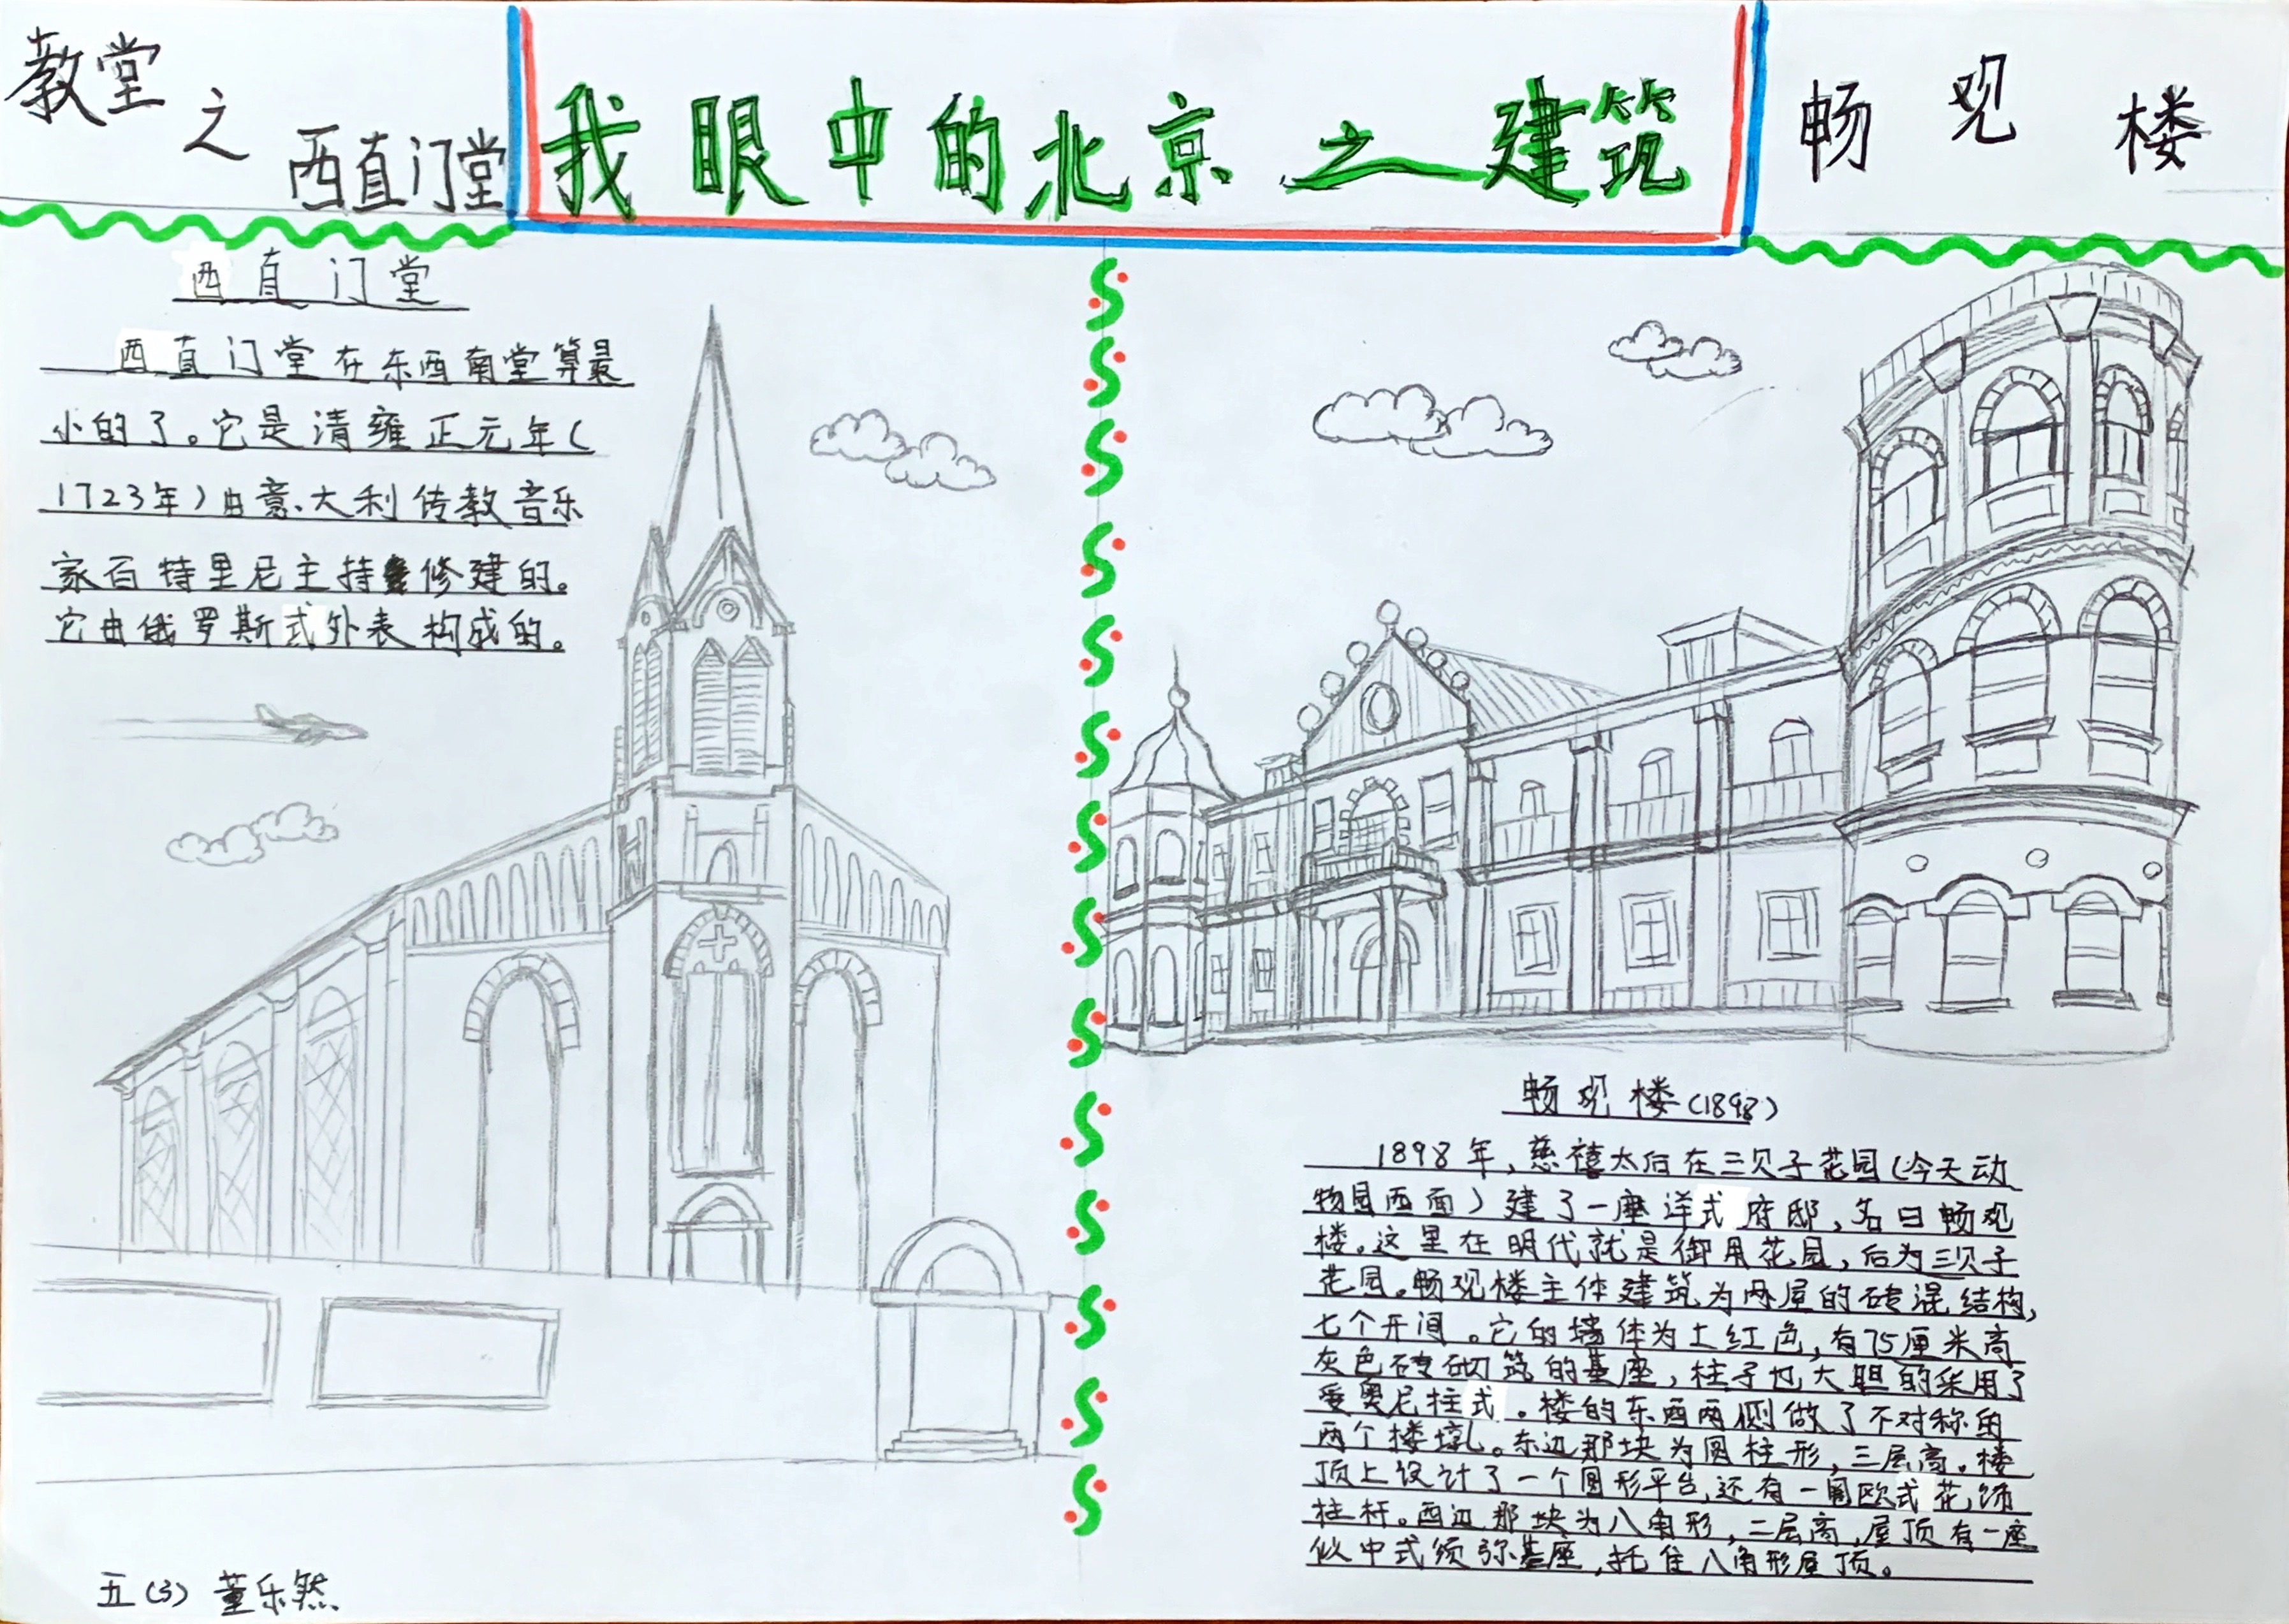 教堂之西直门堂
我眼中的北京之建筑
畅观楼
西直门堂
西直门堂在东西南堂算最
小的了。它是清雍正元年(
1723年)由意大利传教音乐
家百特里尼主持修建的。
它由俄罗斯式外表构成的。
畅观楼(1898)
1898年,慈禧太后在三贝子花园(今天动
物园西面)建了一座洋式府邸,名曰畅观
楼。这里在明代就是御用花园,后为三贝子
花园。畅观楼主体建筑为两层的砖混结构,
七个开间。它的墙体为土红色,有75厘米高
灰色砖砌筑的基座,柱子也大胆的采用了
爱奥尼柱式。楼的东西两侧做了不对称的
两个楼。东边那块为圆柱形,三层高。楼
顶上设计了一个圆形平台,还有一圈欧式花饰
柱杆。西边那块为八角形,二层高,屋顶有一座
似中式须弥基座,托住八角形屋顶。
五(3) 董乐然